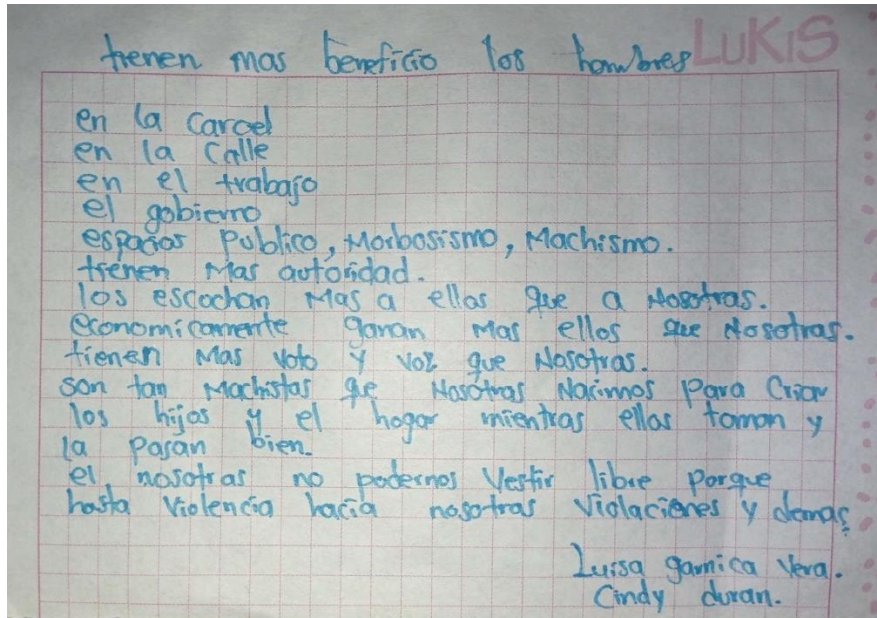 LUKIS
tienen mas beneficio los hombres
en la Carcel
en la Calle
en el trabajo
el gobierno
espacios Publico, Morbosismo, Machismo.
tienen Mas autoridad.
los escochan Mas a ellos que a Nosotras.
economicamente ganan Mas ellos que Nosotras.
tienen Mas voto y voz que Nosotras.
son tan Machistas que Nosotras Nacimos Para Criar
los hijos y el hogar mientras ellos toman y
la Pasan bien.
el nosotras no podemos Vestir libre Porque
hasta Violencia hacia nosotras Violaciones y demas
Luisa garnica Vera.
Cindy duran.